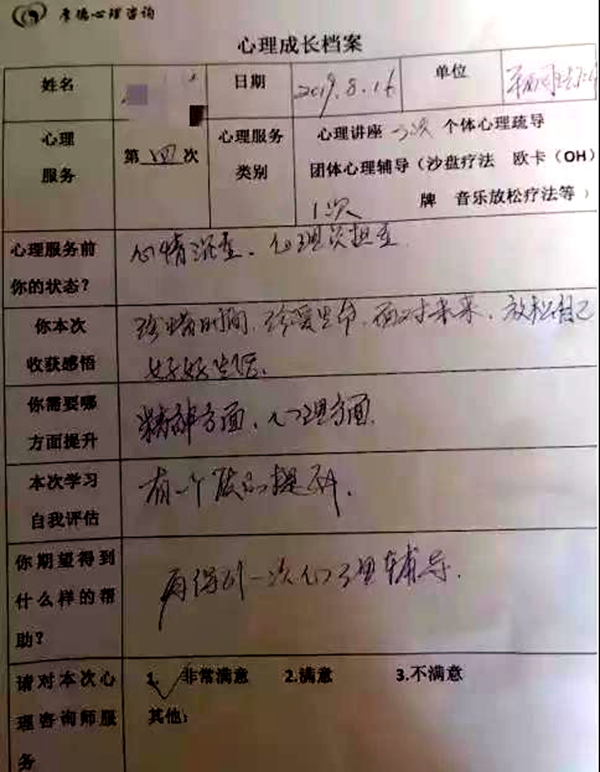 彦德心理咨询
心理成长档案
姓名 日期 2019.8.16 单位
心理服务 第四次 心理服务类别 心理讲座 3次 个体心理疏导
团体心理辅导（沙盘疗法 欧卡（OH）
牌 音乐放松疗法等）
1次
心理服务前
你的状态？
心情沉重、心理负担重
你本次
收获感悟
珍惜时间、珍爱生命、面对未来、放松自己
好好生活、
你需要哪
方面提升
精神方面、心理方面
本次学习
自我评估
有一个 提升.
你期望得到
什么样的帮
助？
再得到一次心理辅导.
请对本次心
理咨询师服
务
1. 非常满意 2.满意 3.不满意
其他：